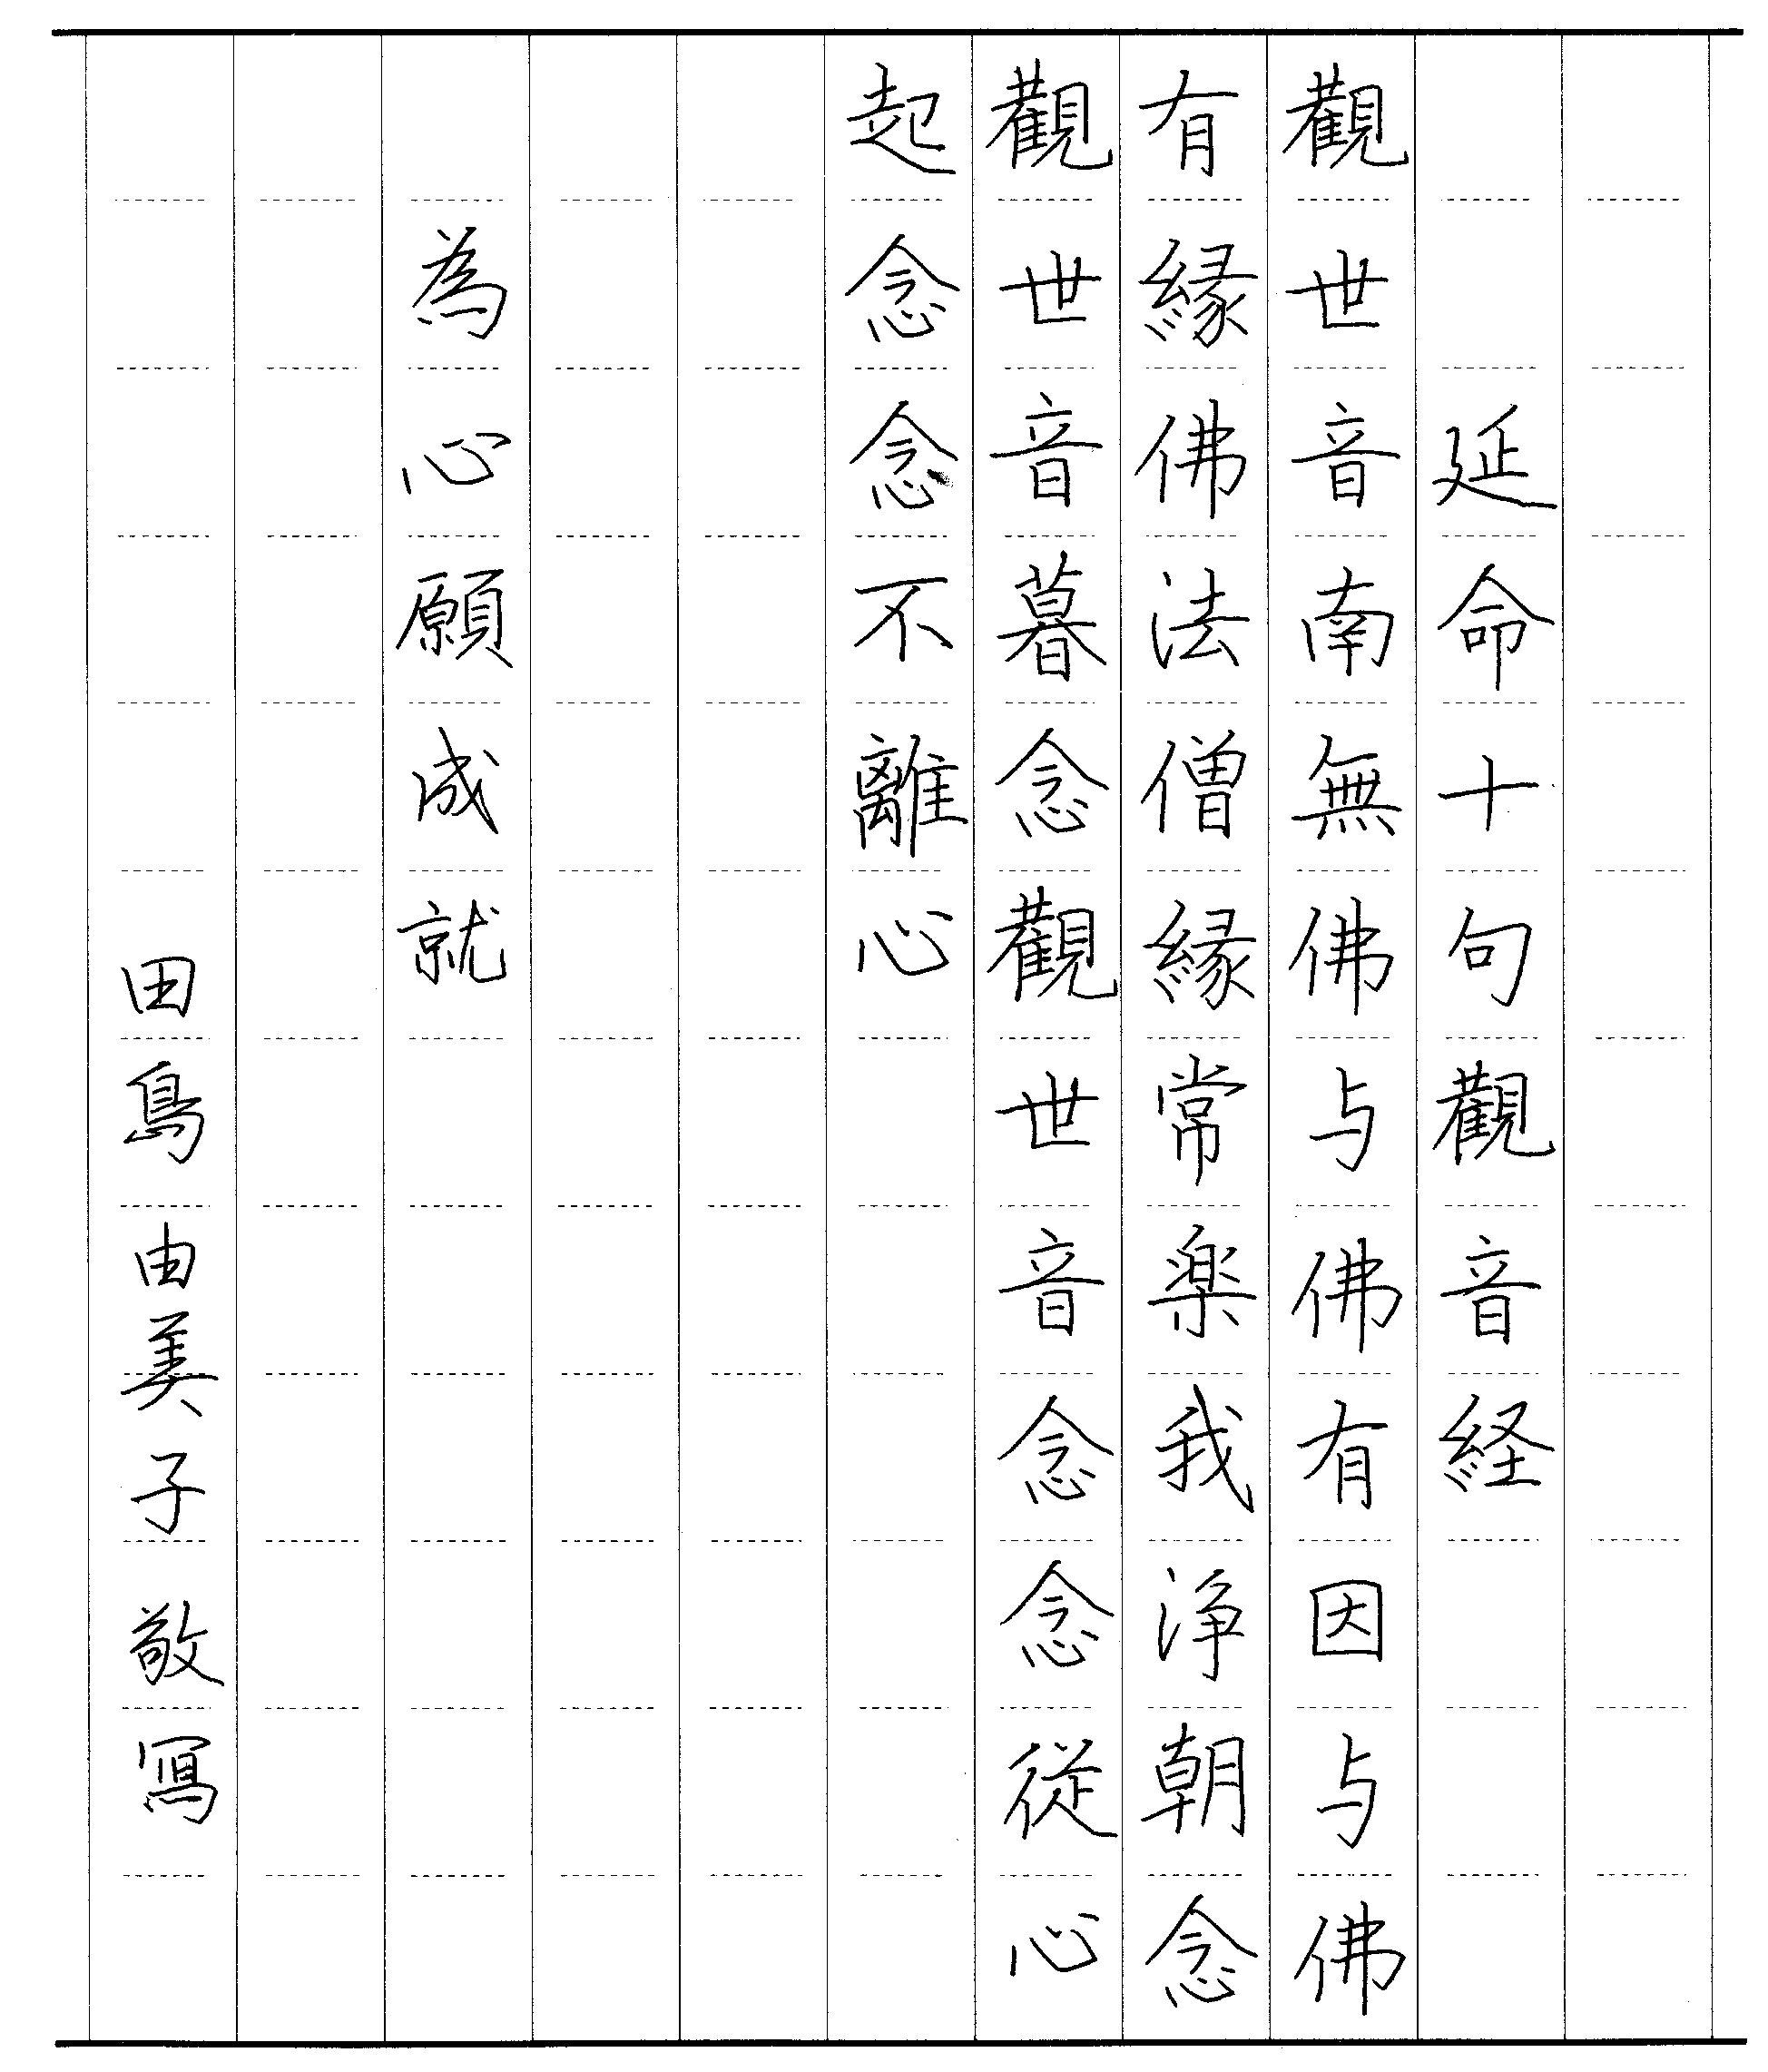 延命十句觀音経
觀世音南無佛与佛有因与佛
有縁佛法僧縁常楽我浄朝念
觀世音暮念觀世音念念従心
起念念不離心
為心願成就
田島由美子敬寫